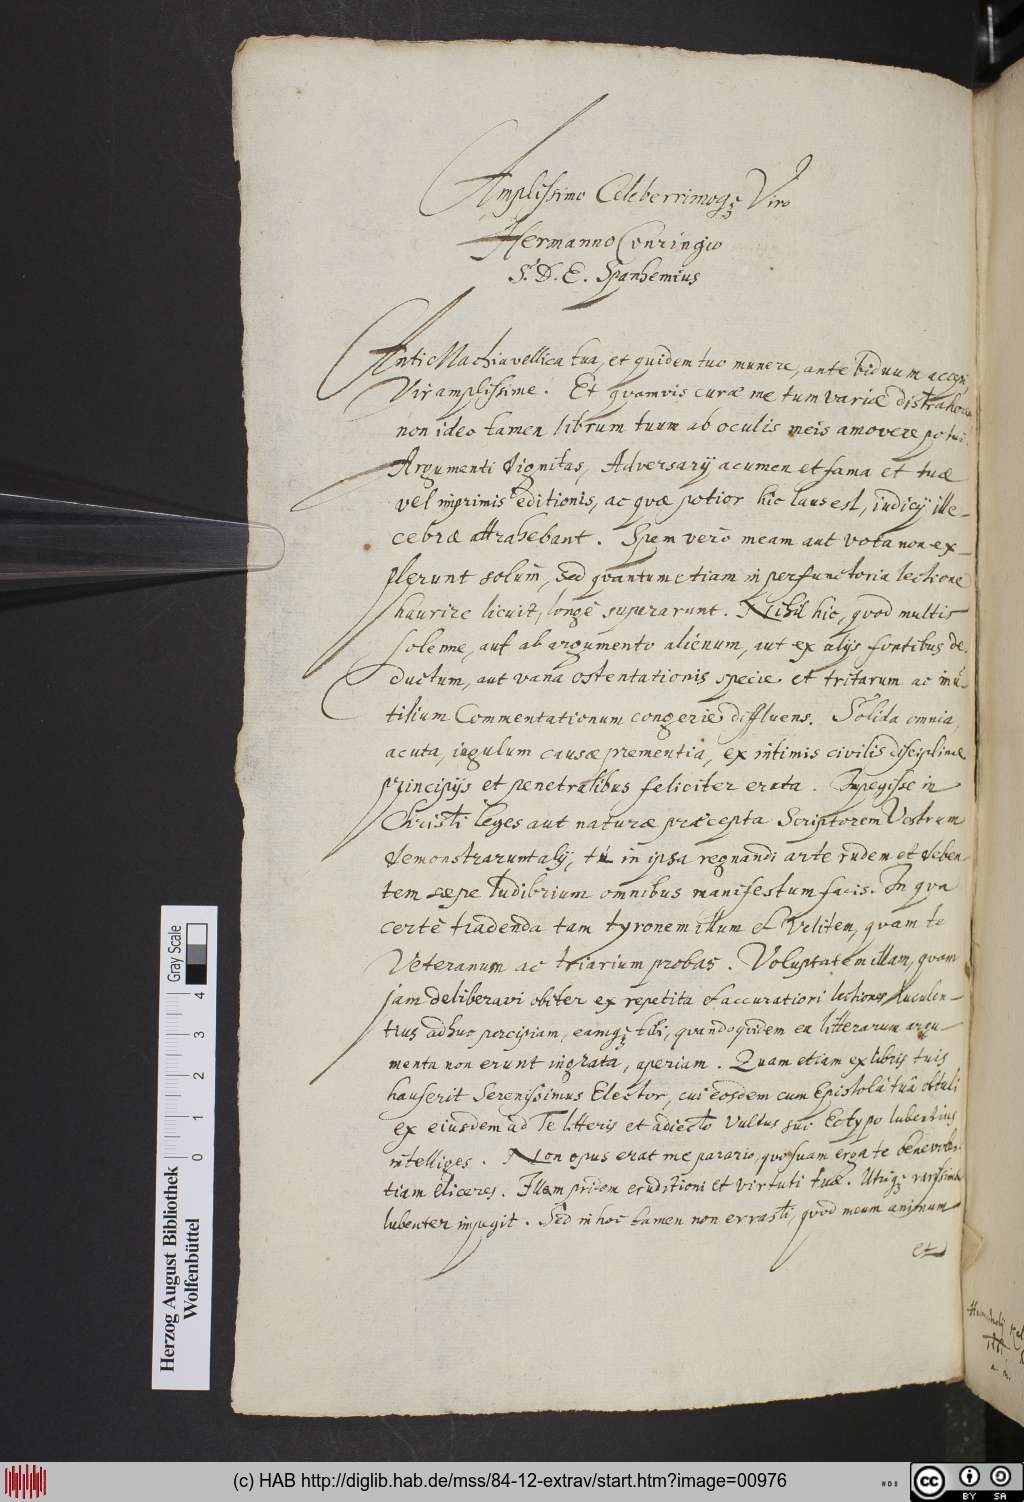 Amplissimo Celeberrimoq; Viro
Hermanno Conringio
S. D. E. Spanhemius
AntiMachiavellica tua, et quidem tuo munere, ante biduum accepi
Vir amplissime. Et quamvis curæ me tum variæ distrahere
non ideo tamen librum tuum ab oculis meis amovere potui.
Argumenti dignitas, Adversarij acumen et fama et tuæ
vel inprimis editionis, ac quæ potior hic laus est, iudicij ille-
cebræ attrahebant. Spem verò meam aut vota non ex-
plerunt solùm, sed quantum etiam in perfunctoria lectione
haurire licuit, longè superarunt. Nihil hic, quod multis
solenne, aut ab argumento alienum, aut ex alijs fontibus de-
ductum, aut vana ostentationis specie et tritarum ac inu-
tilium Commentationum congerie diffluens. Solida omnia,
acuta, iugulum causæ prementia, ex intimis civilis disciplinæ
principijs et penetralibus feliciter eruta. Impegisse in
Christi leges aut naturæ præcepta Scriptorem Vestrum
demonstrarunt alij, tu in ipsa regnandi arte rudem et deben-
tem sæpe ludibrium omnibus manifestum facis. In qua
certè tradenda tam tyronem illum et Veliten, quam te
Veteranum ac triarium probas. Voluptatem illam, quam
jam deliberavi obiter ex repetita et accuratiori lectione luculen-
tius adhuc percipiam, eamq; tibi, quandoquidem ea litterarum argu-
menta non erunt ingrata, aperiam. Quam etiam ex libris tuis
hauserit Serenissimus Elector, cui eosdem cum Epistolâ tuâ obtuli
ex eiusdem ad Te litteris et adiecto Vultus sui Ectypo lubentius
intelliges. Non opus erat me parario, quo suam erga te benevolen-
tiam eliceres. Illam pridem eruditioni et virtuti tuæ. Utriq;
lubenter impegit. Sed in hoc tamen non errasti, quod meum animum
et
Herzog August Bibliothek
Wolfenbüttel
Gray Scale
0 1 2 3 4
(c) HAB http://diglib.hab.de/mss/84-12-extrav/start.htm?image=00976
cc BY SA